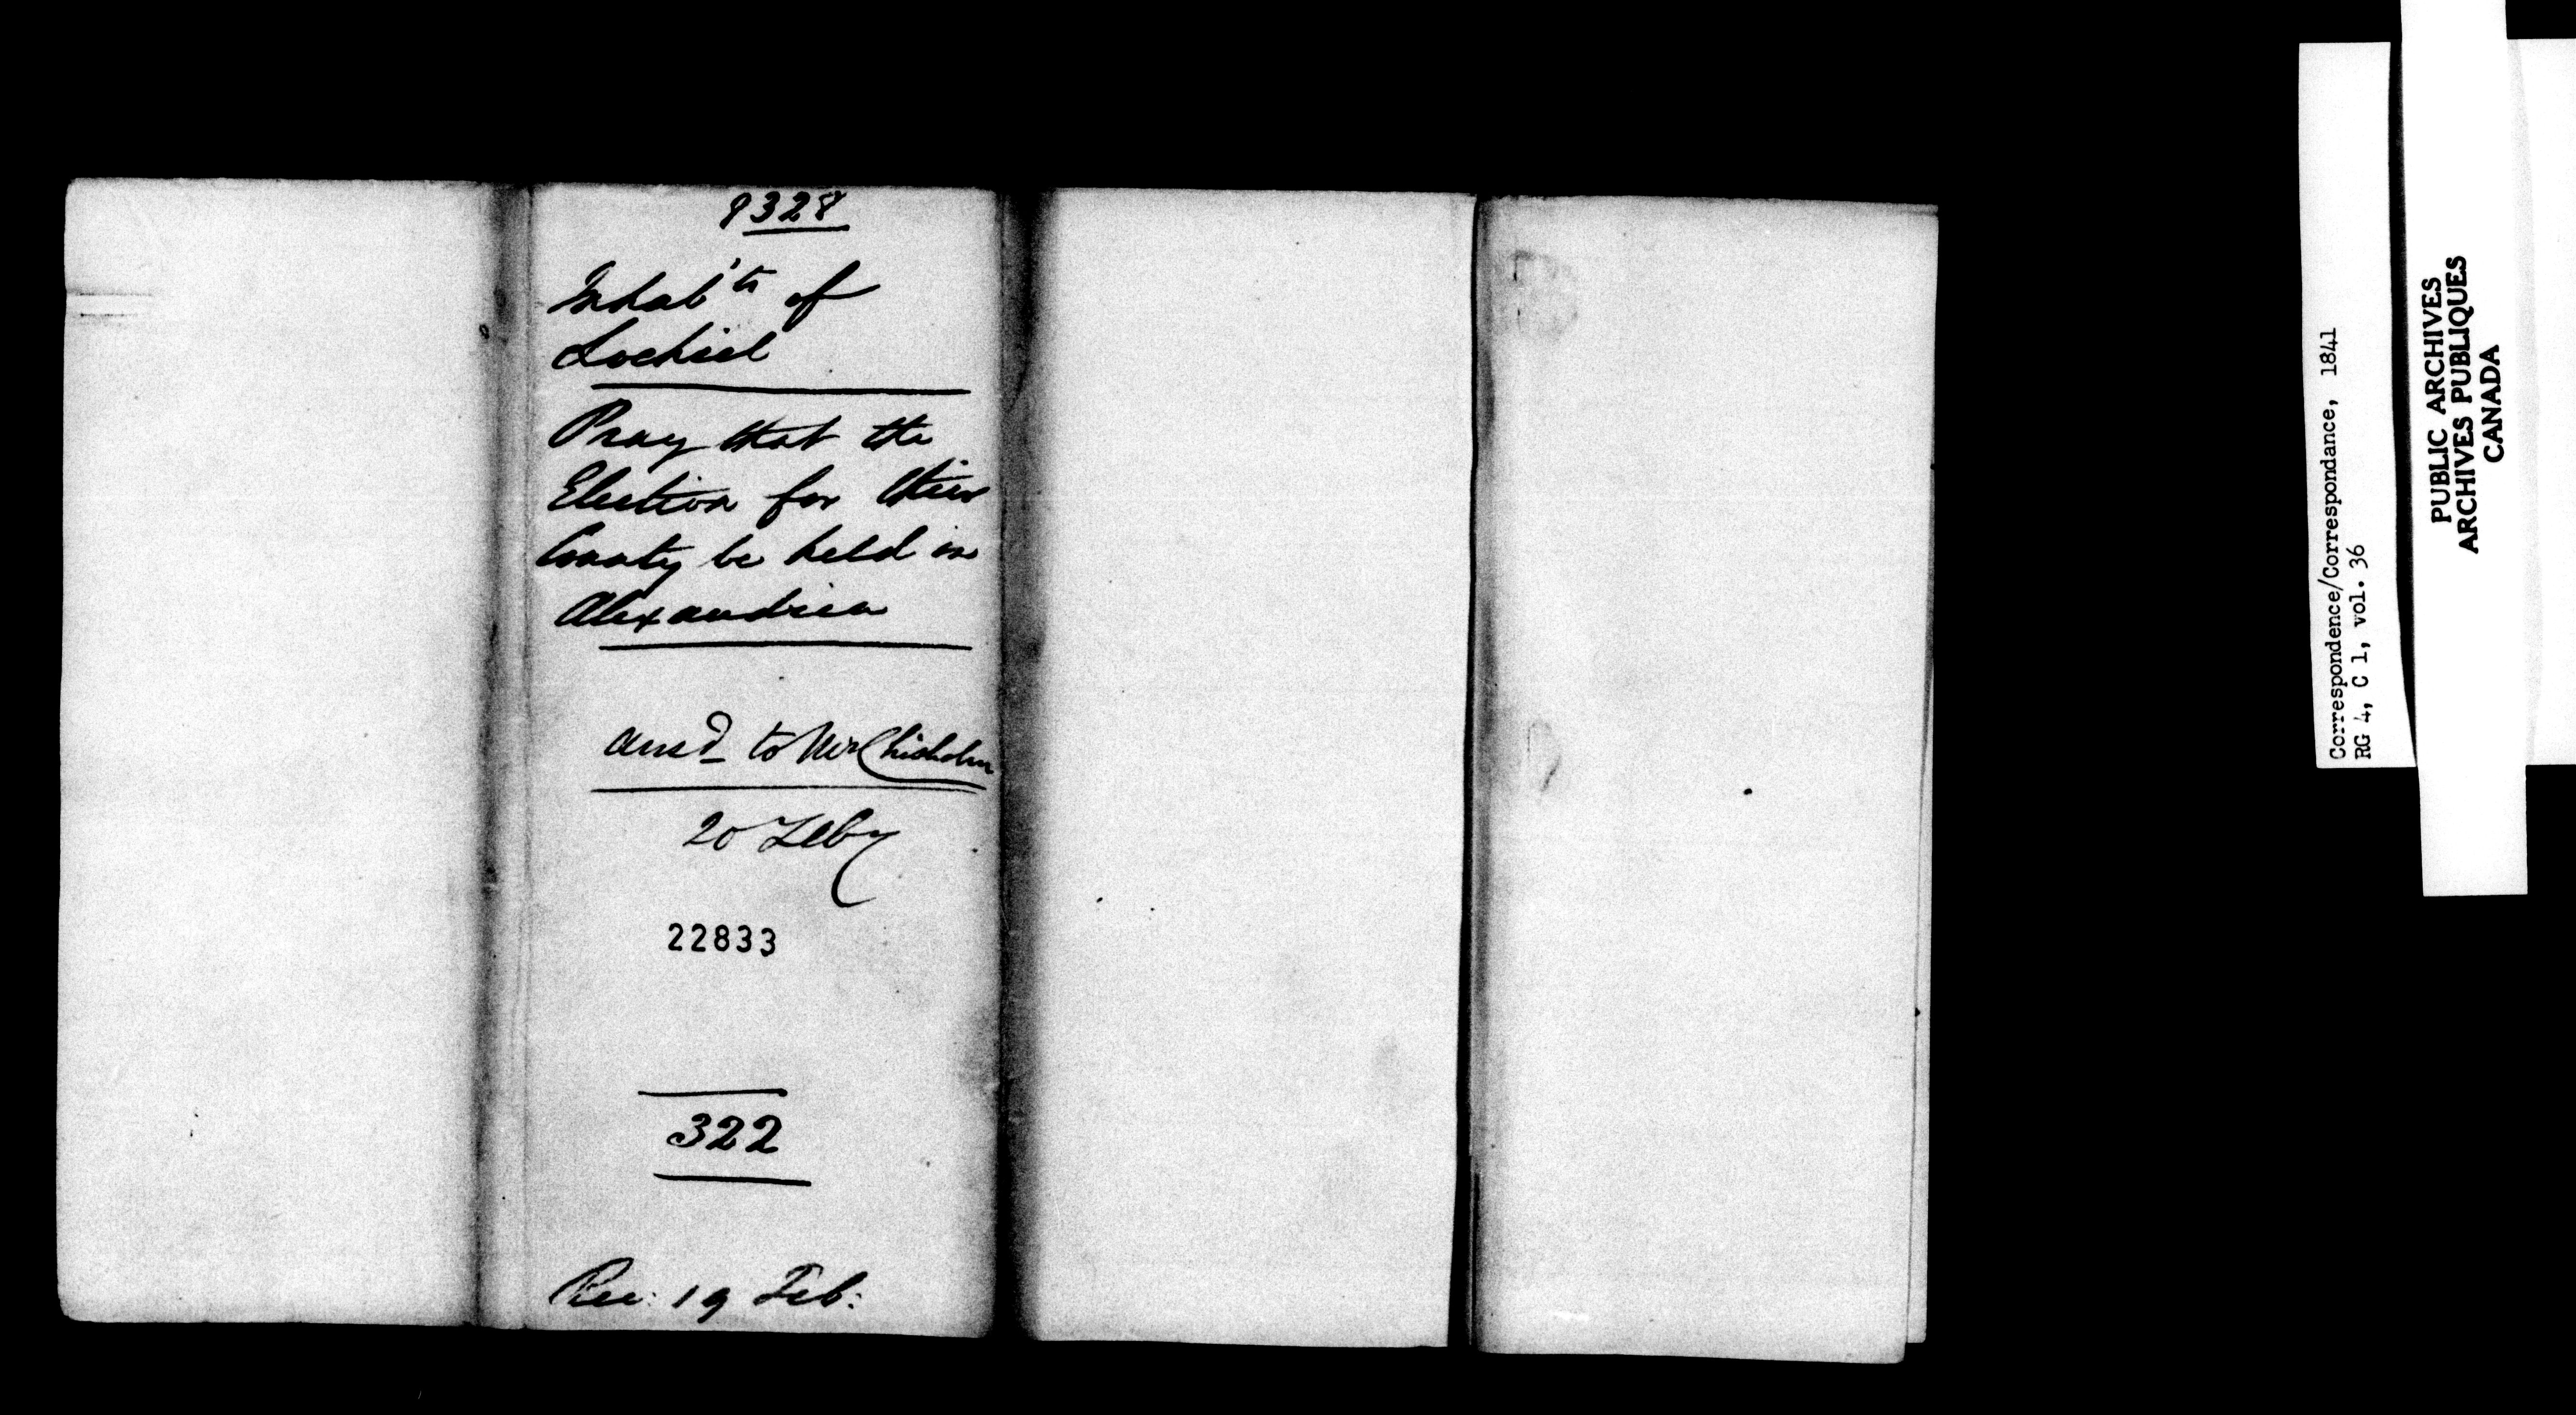 8328
Inhab'ts of
Lochiel
Pray that the
Election for their
County be held in
Alexandria
ansd to Mr Chisholm
20 Feby
22833
322
Rec: 19 Feb:
Correspondence/Correspondance, 1841
RG 4, C 1, vol. 36
PUBLIC ARCHIVES
ARCHIVES PUBLIQUES
CANADA